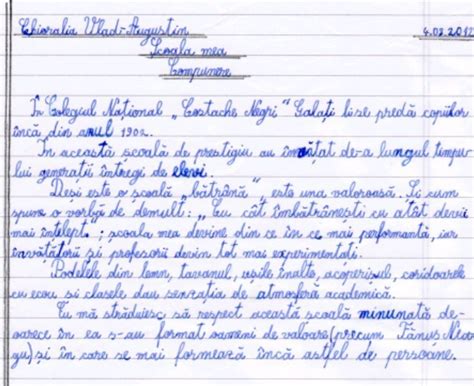 Chioralia Vlad-Augustin 4.02.2012
Școala mea
Compunere
În Colegiul Național „Costache Negri" Galați li se predă copiilor
încă din anul 1902.
În această școală de prestigiu au învățat de-a lungul timpu-
lui generații întregi de elevi.
Deși este o școală „bătrână", este una valoroasă. Și cum
spune o vorbă de demult: „Cu cât îmbătrânești cu atât devii
mai înțelept", școala mea devine din ce în ce mai performantă, iar
învățătorii și profesorii devin tot mai experimentați.
Podelele din lemn, tavanul, ușile înalte, acoperișul, coridoarele
cu ecou și clasele dau senzația de atmosferă academică.
Eu mă străduiesc să respect această școală minunată de-
oarece în ea s-au format oameni de valoare (precum Fănuș Nea-
gu) și în care se mai formează încă astfel de persoane.